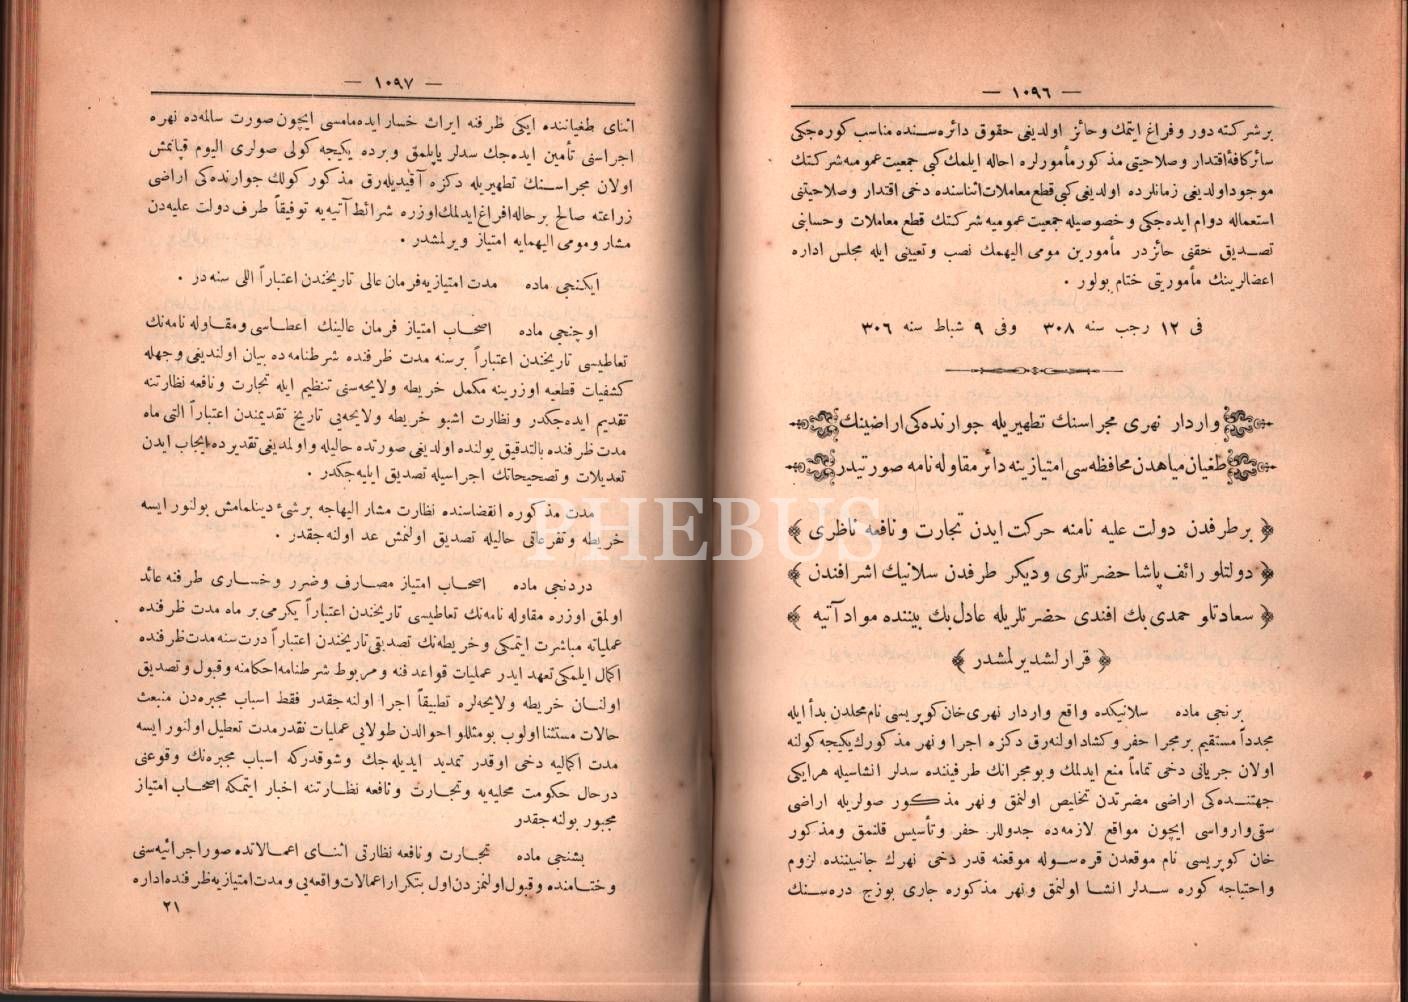 — ١٠٩٦ —
بر شركته دور و فراغ ايتمك و حائز اولديغى حقوق دائره سنده مناسب كوره جكى
سائر كافۀ اقتدار و صلاحيتى مذكور مأمورلره احاله ايلمك كبى جمعيت عموميه شركتك
موجود اولديغى زمانلرده اولديغى كبى قطع معاملات اثناسنده دخى اقتدار و صلاحيتنى
استعماله دوام ايده جكى و خصوصيله جمعيت عموميه شركتك قطع معاملات و حسابنى
تصديق حقنى حائزدر مأمورين مومى اليهمك نصب و تعيينى ايله مجلس اداره
اعضالرينك مأموريتى ختام بولور .
فى ١٢ رجب سنه ٣٠٨ وفى ٩ شباط سنه ٣٠٦
واردار نهرى مجراسنك تطهيريله جوارنده كى اراضينك
طغيان مياهدن محافظه سى امتيازينه دائر مقاوله نامه صورتيدر
﴿ بر طرفدن دولت عليه نامنه حركت ايدن تجارت و نافعه ناظرى ﴾
﴿ دولتلو رائف پاشا حضرتلرى و ديكر طرفدن سلانيك اشرافندن ﴾
﴿ سعادتلو حمدى بك افندى حضرتلريله عادل بك بيننده مواد آتيه ﴾
﴿ قرارلشديرلمشدر ﴾
برنجى ماده سلانيكده واقع واردار نهرى خان كوپريسى نام محلدن بدأ ايله
مجدداً مستقيم بر مجرا حفر و كشاد اولنه رق دكزه اجرا و نهر مذكورك يكيجه كولنه
اولان جريانى دخى تماماً منع ايدلمك و بو مجرانك طرفيننده سدلر انشاسيله هر ايكى
جهتنده كى اراضى مضرتدن تخليص اولنمق و نهر مذكور صولريله اراضى
سقى و ارواسى ايچون مواقع لازمه ده جدوللر حفر و تأسيس قلنمق و مذكور
خان كوپريسى نام موقعدن قره سوله موقعنه قدر دخى نهرك جانبيننده لزوم
و احتياجه كوره سدلر انشا اولنمق و نهر مذكوره جارى بوزج دره سنك
— ١٠٩٧ —
اثناى طغياننده ايكى طرفنه ايراث خسار ايده مامسى ايچون صورت سالمه ده نهره
اجراسنى تأمين ايده جك سدلر ياپلمق و برده يكيجه كولى صولرى اليوم قپانمش
اولان مجراسنك تطهيريله دكزه آقيديله رق مذكور كولك جوارنده كى اراضى
زراعته صالح بر حاله افراغ ايدلمك اوزره شرائط آتيه يه توفيقاً طرف دولت عليه دن
مشار و مومى اليهمايه امتياز ويرلمشدر .
ايكنجى ماده مدت امتيازيه فرمان عالى تاريخندن اعتباراً اللى سنه در .
اوچنجى ماده اصحاب امتياز فرمان عالينك اعطاسى و مقاوله نامه نك
تعاطيسى تاريخندن اعتباراً بر سنه مدت ظرفنده شرطنامه ده بيان اولنديغى وجهله
كشفيات قطعيه اوزرينه مكمل خريطه و لايحه سنى تنظيم ايله تجارت و نافعه نظارتنه
تقديم ايده جكدر و نظارت اشبو خريطه و لايحه يى تاريخ تقديمندن اعتباراً التى ماه
مدت ظرفنده بالتدقيق يولنده اولديغى صورتده حاليله و اولمديغى تقديرده ايجاب ايدن
تعديلات و تصحيحاتك اجراسيله تصديق ايليه جكدر .
مدت مذكوره انقضاسنده نظارت مشار اليهاجه برشئ دينلمامش بولنور ايسه
خريطه و تفرعاتى حاليله تصديق اولنمش عد اولنه جقدر .
دردنجى ماده اصحاب امتياز مصارف و ضرر و خسارى طرفنه عائد
اولمق اوزره مقاوله نامه نك تعاطيسى تاريخندن اعتباراً يكرمى بر ماه مدت ظرفنده
عملياته مباشرت ايتمكى و خريطه نك تصديقى تاريخندن اعتباراً درت سنه مدت ظرفنده
اكمال ايلمكى تعهد ايدر عمليات قواعد فنه و مربوط شرطنامه احكامنه و قبول و تصديق
اولنان خريطه و لايحه لره تطبيقاً اجرا اولنه جقدر فقط اسباب مجبره دن منبعث
حالات مستثنا اولوب بو مثللو احوالدن طولايى عمليات نقدر مدت تعطيل اولنور ايسه
مدت اكماليه دخى اوقدر تمديد ايديله جك و شوقدركه اسباب مجبره نك وقوعنى
درحال حكومت محليه يه و تجارت و نافعه نظارتنه اخبار ايتمكه اصحاب امتياز
مجبور بولنه جقدر
بشنجى ماده تجارت و نافعه نظارتى اثناى اعمالاتده صور اجرائيه سنى
و ختامنده و قبول اولنمزدن اول بتكرار اعمالات واقعه يى و مدت امتيازيه ظرفنده اداره
٢١
PHEBUS